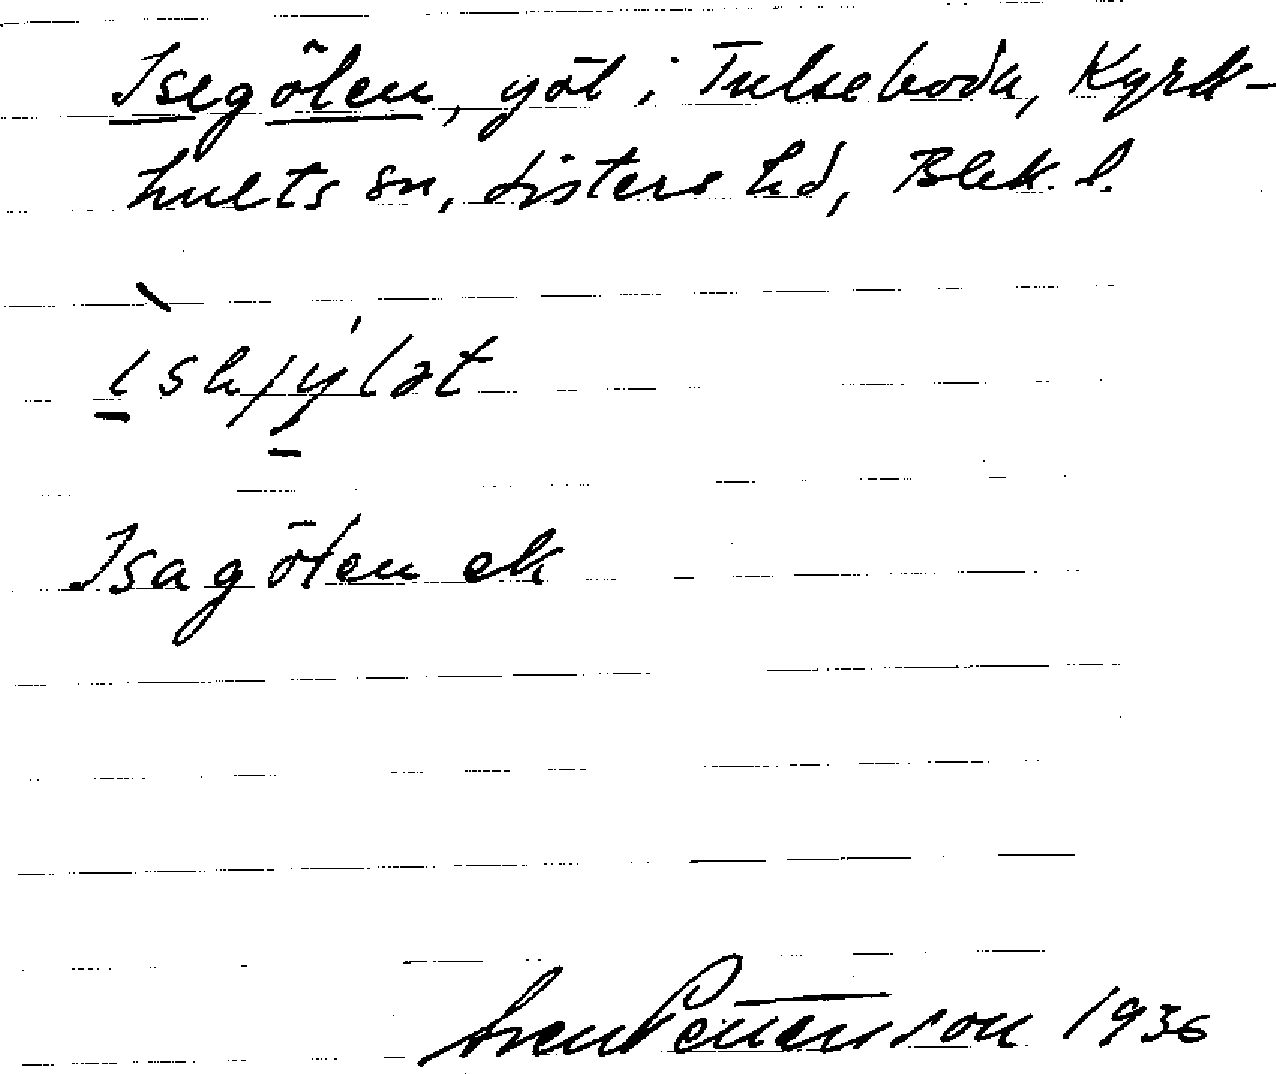 Isegölen, göl i Tulseboda, Kyrk-
hults sn, Listers hd, Blek. l.
Isagölen ek
Sven Pettersson 1936